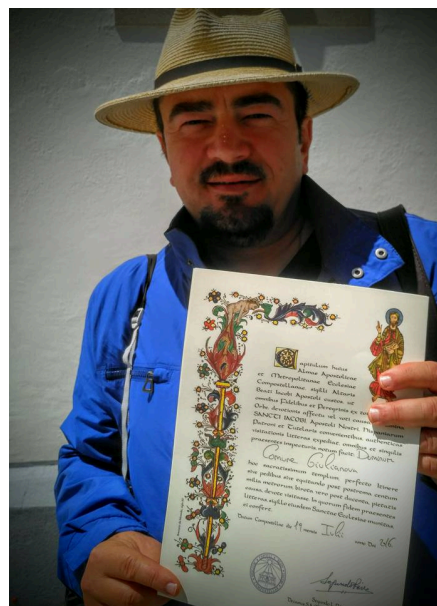 Capitulum huius
Almae Apostolicae
et Metropolitanae Ecclesiae
Compostellanae sigilli Altaris
Beati Iacobi Apostoli custos, ut
omnibus Fidelibus et Peregrinis ex
Orbe, devotionis affectu vel voti causa
SANCTI IACOBI Apostoli Nostri
Patroni et Tutelaris convenientibus authenticas
visitationis litteras expediat, omnibus et singulis
praesentes inspecturis, notum facit: Dominum
hoc sacratissimum templum, perfecto Itinere
sive pedibus sive equitando post postrema centum
milia metrorum, birota vero post ducenta, pietatis
causa, devote visitasse. In quorum fidem praesentes
litteras sigillo eiusdem Sanctae Ecclesiae munitas
ei confero.
Datum Compostellae die 19 mensis Iulii anno Dni